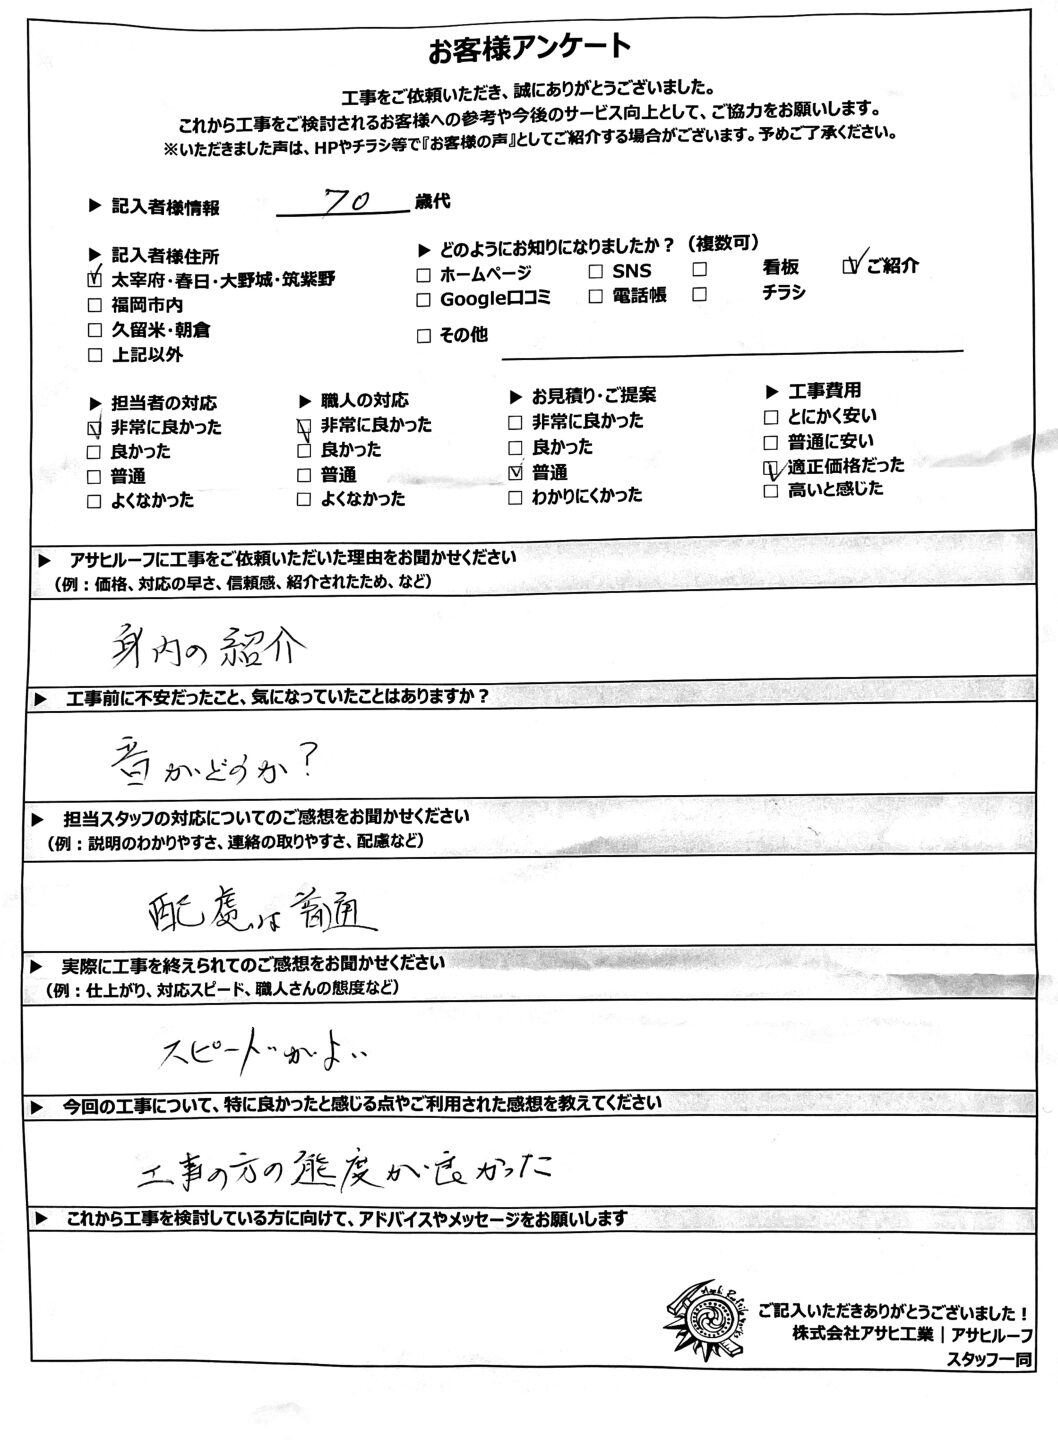 お客様アンケート
工事をご依頼いただき、誠にありがとうございました。
これから工事をご検討されるお客様への参考や今後のサービス向上として、ご協力をお願いします。
※いただきました声は、HPやチラシ等で『お客様の声』としてご紹介する場合がございます。予めご了承ください。
▶ 記入者様情報 70 歳代
▶ 記入者様住所
☑ 太宰府・春日・大野城・筑紫野
□ 福岡市内
□ 久留米・朝倉
□ 上記以外
▶ どのようにお知りになりましたか？（複数可）
□ ホームページ □ SNS □ 看板 ☑ ご紹介
□ Google口コミ □ 電話帳 □ チラシ
□ その他
▶ 担当者の対応
☑ 非常に良かった
□ 良かった
□ 普通
□ よくなかった
▶ 職人の対応
☑ 非常に良かった
□ 良かった
□ 普通
□ よくなかった
▶ お見積り・ご提案
□ 非常に良かった
□ 良かった
☑ 普通
□ わかりにくかった
▶ 工事費用
□ とにかく安い
□ 普通に安い
☑ 適正価格だった
□ 高いと感じた
▶ アサヒルーフに工事をご依頼いただいた理由をお聞かせください
（例：価格、対応の早さ、信頼感、紹介されたため、など）
身内の紹介
▶ 工事前に不安だったこと、気になっていたことはありますか？
音がどうか？
▶ 担当スタッフの対応についてのご感想をお聞かせください
（例：説明のわかりやすさ、連絡の取りやすさ、配慮など）
配慮は普通
▶ 実際に工事を終えられてのご感想をお聞かせください
（例：仕上がり、対応スピード、職人さんの態度など）
スピードがよい
▶ 今回の工事について、特に良かったと感じる点やご利用された感想を教えてください
工事の方の態度が良かった
▶ これから工事を検討している方に向けて、アドバイスやメッセージをお願いします
ご記入いただきありがとうございました！
株式会社アサヒ工業｜アサヒルーフ
スタッフ一同